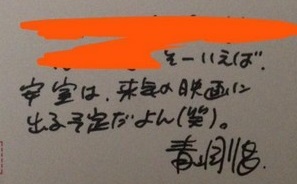 そーいえば、
安室は、来年の映画に
出る予定だよん(笑)。
青山剛昌